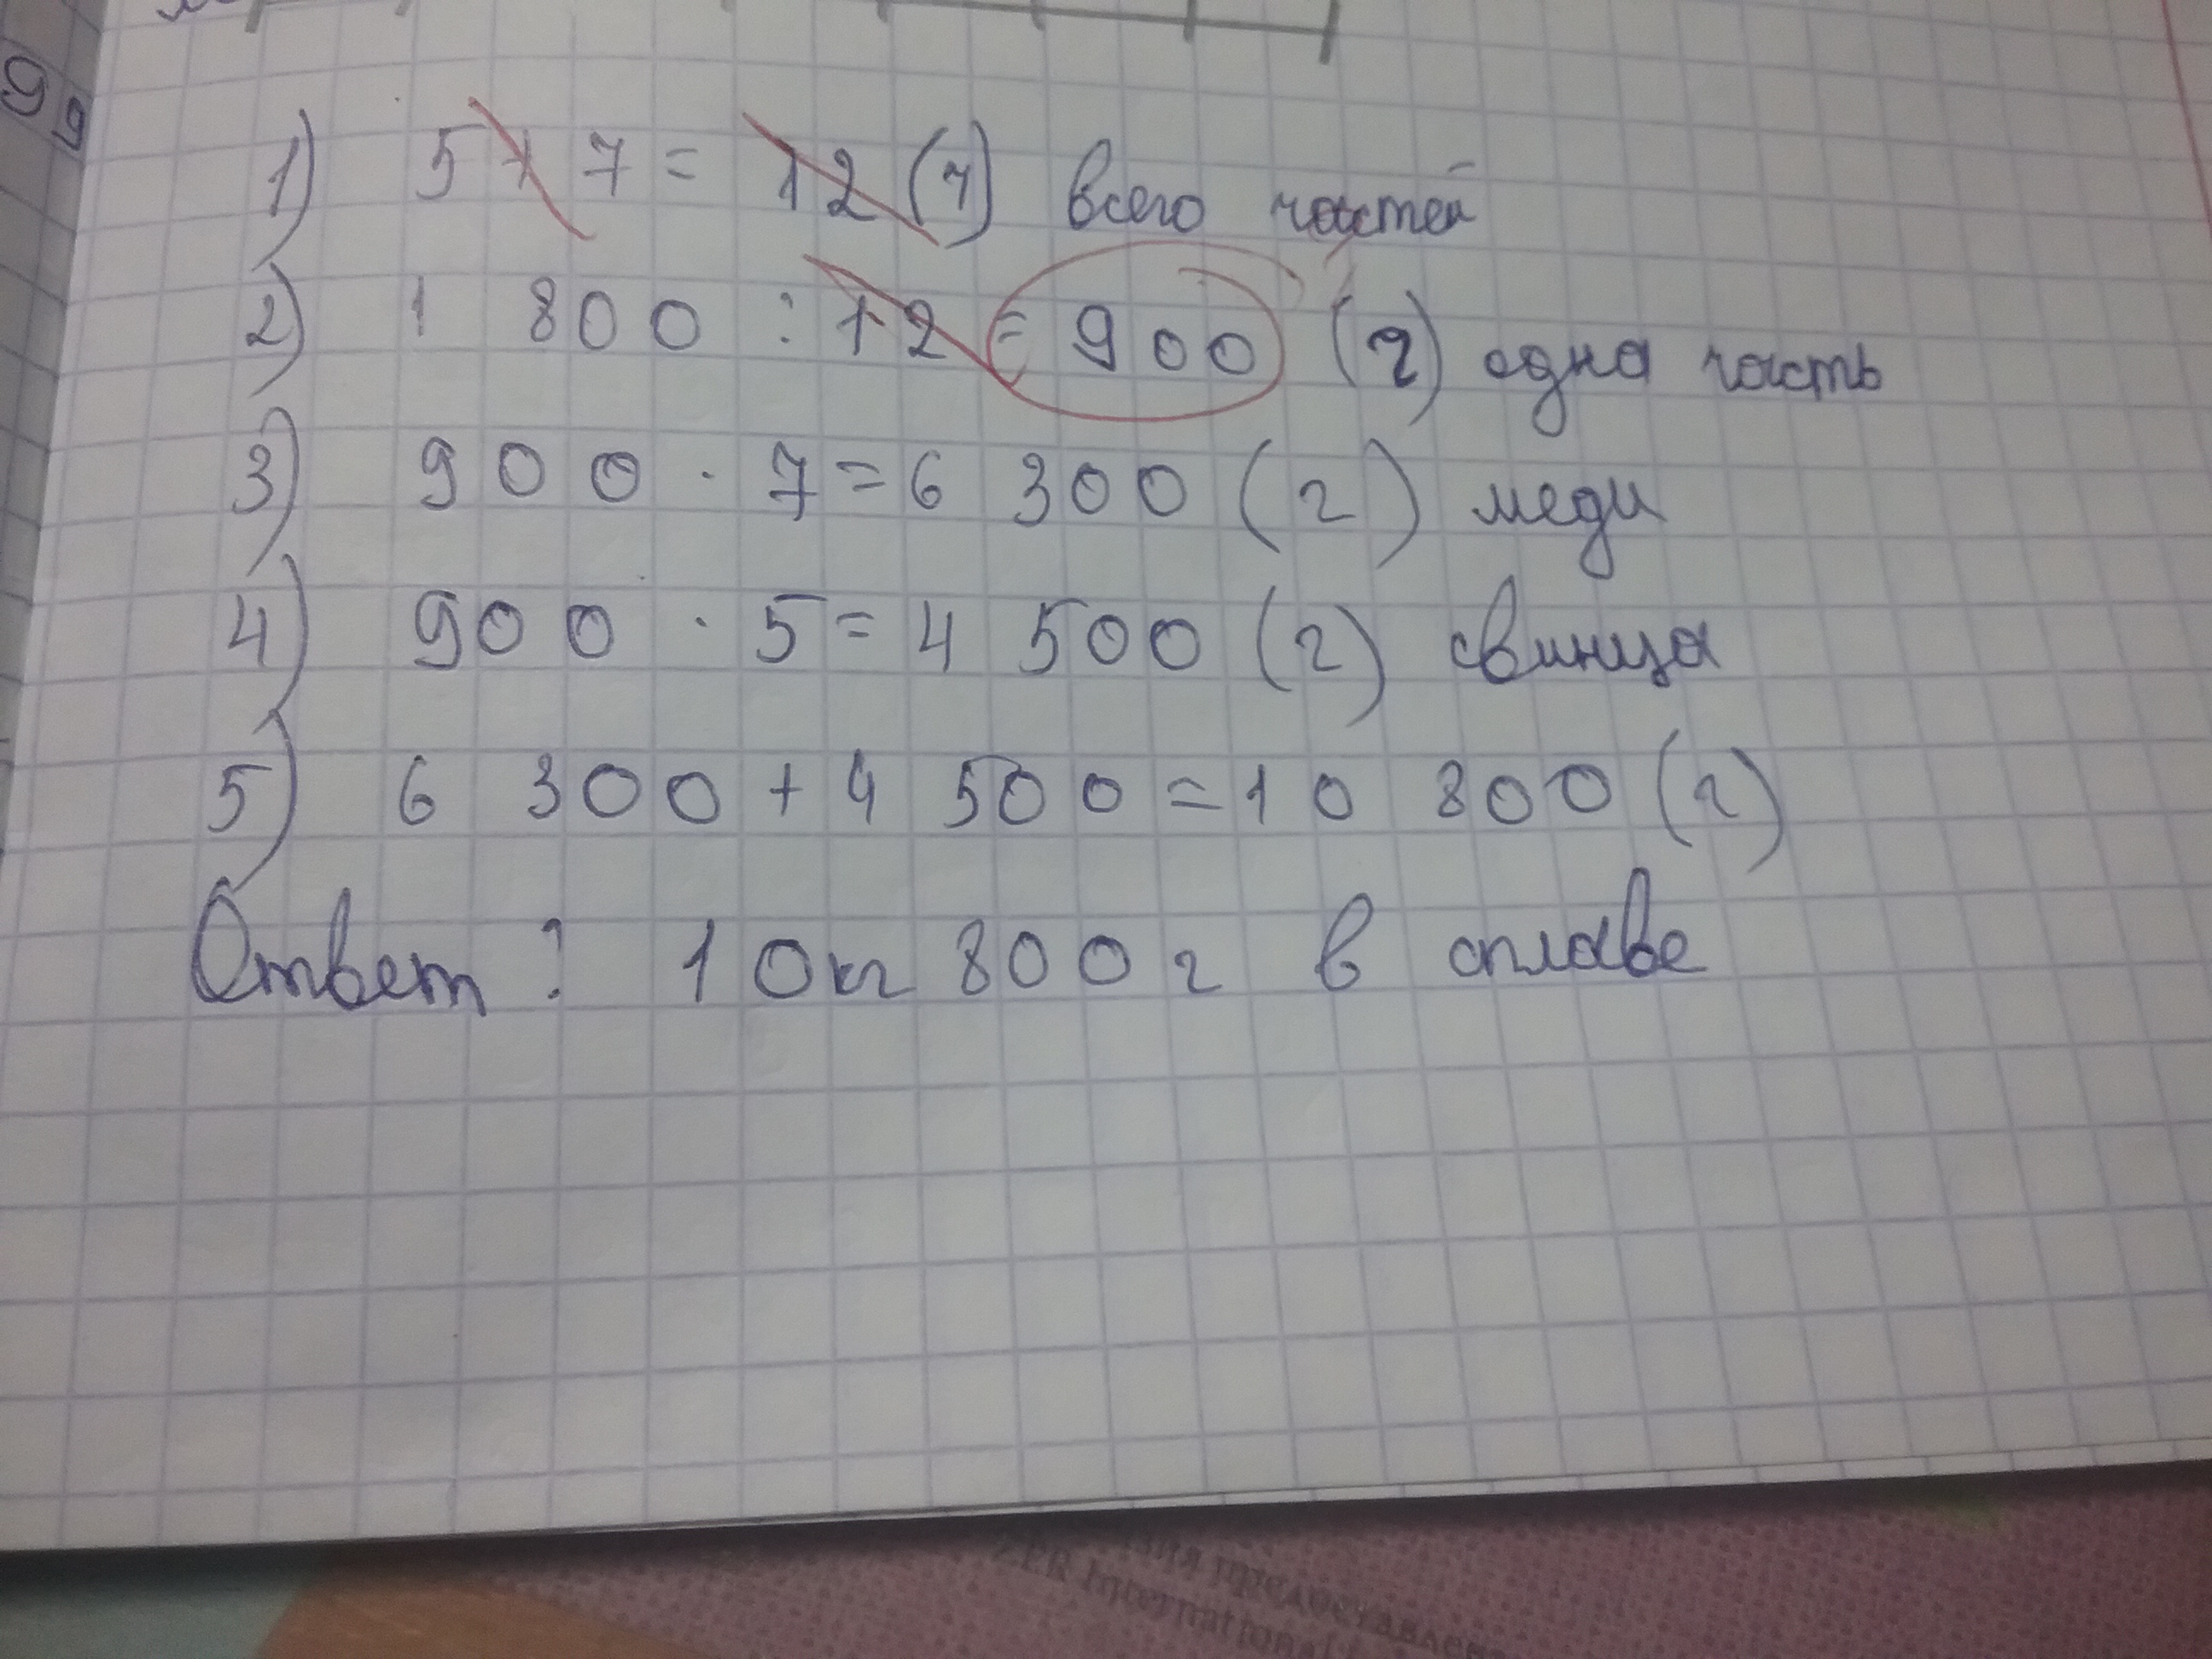 99
1) 5 + 7 = 12 (ч) всего частей
2) 1 800 : 12 = 900 (г) одна часть
3) 900 · 7 = 6 300 (г) меди
4) 900 · 5 = 4 500 (г) свинца
5) 6 300 + 4 500 = 10 800 (г)
Ответ: 10кг 800г в сплаве
предоставлена
ZER International